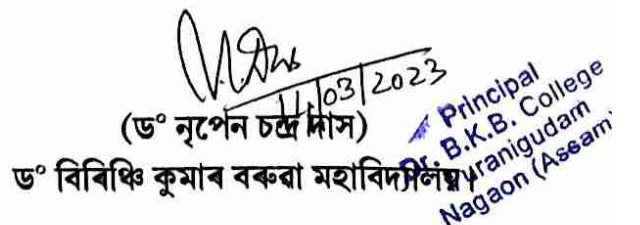 11/03/2023
(ড° নৃপেন চন্দ্ৰ দাস)
ড° বিৰিঞ্চি কুমাৰ বৰুৱা মহাবিদ্যালয়।
Principal
B.K.B. College
Puranigudam
Nagaon (Assam)